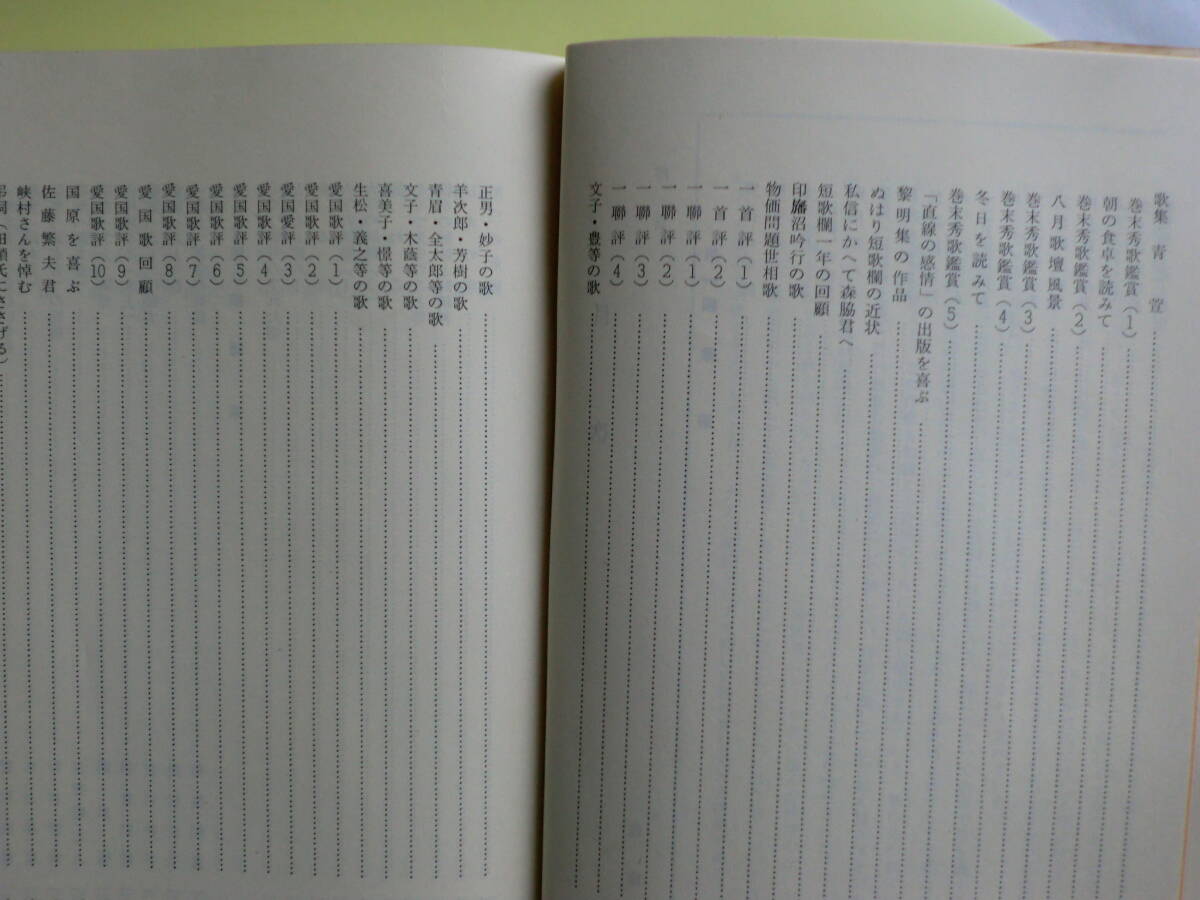 歌集 青萱
巻末秀歌鑑賞(1)
朝の食卓を読みて
巻末秀歌鑑賞(2)
八月歌壇風景
巻末秀歌鑑賞(3)
巻末秀歌鑑賞(4)
冬日を読みて
巻末秀歌鑑賞(5)
「直線の感情」の出版を喜ぶ
黎明集の作品
ぬはり短歌欄の近状
私信にかへて森脇君へ
短歌欄一年の回顧
印旛沼吟行の歌
物価問題世相歌
一首評(1)
一首評(2)
一聯評(1)
一聯評(2)
一聯評(3)
一聯評(4)
文子・豊等の歌
正男・妙子の歌
羊次郎・芳樹の歌
青眉・全太郎等の歌
文子・木蔭等の歌
喜美子・憬等の歌
生松・義之等の歌
愛国歌評(1)
愛国歌評(2)
愛国愛評(3)
愛国歌評(4)
愛国歌評(5)
愛国歌評(6)
愛国歌評(7)
愛国歌評(8)
愛国歌回顧
愛国歌評(9)
愛国歌評(10)
国原を喜ぶ
佐藤繁夫君
峡村さんを悼む